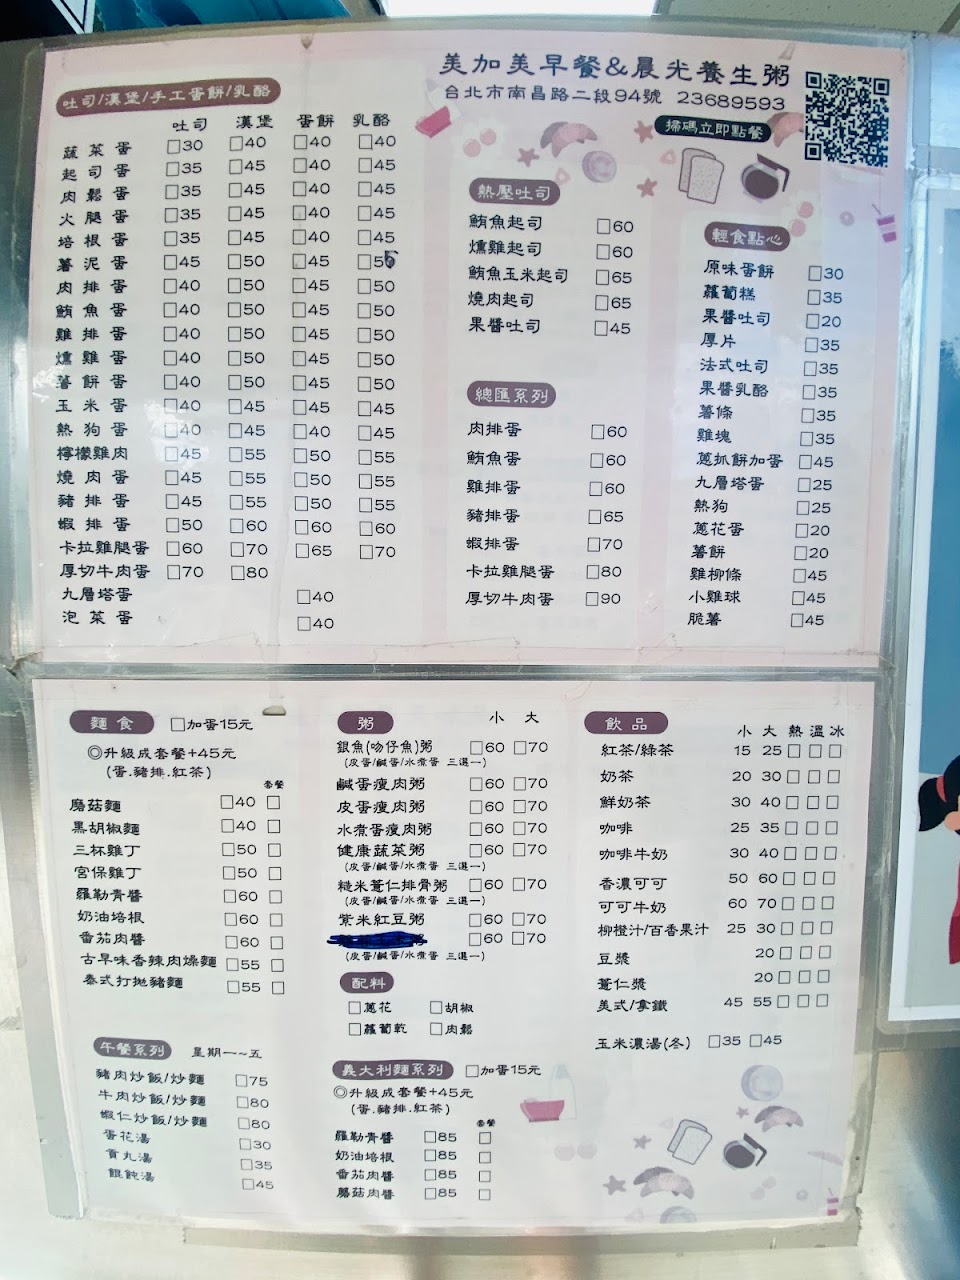 美加美早餐&晨光養生粥
台北市南昌路二段94號 23689593
掃碼立即點餐
吐司/漢堡/手工蛋餅/乳酪
吐司 漢堡 蛋餅 乳酪
蔬菜蛋 □30 □40 □40 □40
起司蛋 □35 □45 □40 □45
肉鬆蛋 □35 □45 □40 □45
火腿蛋 □35 □45 □40 □45
培根蛋 □35 □45 □40 □45
薯泥蛋 □45 □50 □45 □50
肉排蛋 □40 □50 □45 □50
鮪魚蛋 □40 □50 □45 □50
雞排蛋 □40 □50 □45 □50
燻雞蛋 □40 □50 □45 □50
薯餅蛋 □40 □50 □45 □50
玉米蛋 □40 □45 □45 □45
熱狗蛋 □40 □45 □40 □45
檸檬雞肉 □45 □55 □50 □55
燒肉蛋 □45 □55 □50 □55
豬排蛋 □45 □55 □50 □55
蝦排蛋 □50 □60 □60 □60
卡拉雞腿蛋 □60 □70 □65 □70
厚切牛肉蛋 □70 □80
九層塔蛋 □40
泡菜蛋 □40
熱壓吐司
鮪魚起司 □60
燻雞起司 □60
鮪魚玉米起司 □65
燒肉起司 □65
果醬吐司 □45
總匯系列
肉排蛋 □60
鮪魚蛋 □60
雞排蛋 □60
豬排蛋 □65
蝦排蛋 □70
卡拉雞腿蛋 □80
厚切牛肉蛋 □90
輕食點心
原味蛋餅 □30
蘿蔔糕 □35
果醬吐司 □20
厚片 □35
法式吐司 □35
果醬乳酪 □35
薯條 □35
雞塊 □35
蔥抓餅加蛋 □45
九層塔蛋 □25
熱狗 □25
蔥花蛋 □20
薯餅 □20
雞柳條 □45
小雞球 □45
脆薯 □45
麵食 □加蛋15元
◎升級成套餐+45元
(蛋.豬排.紅茶)
套餐
蘑菇麵 □40 □
黑胡椒麵 □40 □
三杯雞丁 □50 □
宮保雞丁 □50 □
羅勒青醬 □60 □
奶油培根 □60 □
番茄肉醬 □60 □
古早味香辣肉燥麵 □55 □
泰式打拋豬麵 □55 □
午餐系列 星期一~五
豬肉炒飯/炒麵 □75
牛肉炒飯/炒麵 □80
蝦仁炒飯/炒麵 □80
蛋花湯 □30
貢丸湯 □35
餛飩湯 □45
粥 小 大
銀魚(吻仔魚)粥 □60 □70
(皮蛋/鹹蛋/水煮蛋 三選一)
鹹蛋瘦肉粥 □60 □70
皮蛋瘦肉粥 □60 □70
水煮蛋瘦肉粥 □60 □70
健康蔬菜粥 □60 □70
(皮蛋/鹹蛋/水煮蛋 三選一)
糙米薏仁排骨粥 □60 □70
(皮蛋/鹹蛋/水煮蛋 三選一)
紫米紅豆粥 □60 □70
□60 □70
(皮蛋/鹹蛋/水煮蛋 三選一)
配料
□蔥花 □胡椒
□蘿蔔乾 □肉鬆
義大利麵系列 □加蛋15元
◎升級成套餐+45元
(蛋.豬排.紅茶)
套餐
羅勒青醬 □85 □
奶油培根 □85 □
番茄肉醬 □85 □
蘑菇肉醬 □85 □
飲品 小 大 熱 溫 冰
紅茶/綠茶 15 25 □ □ □
奶茶 20 30 □ □ □
鮮奶茶 30 40 □ □ □
咖啡 25 35 □ □ □
咖啡牛奶 30 40 □ □ □
香濃可可 50 60 □ □ □
可可牛奶 60 70 □ □ □
柳橙汁/百香果汁 25 30 □ □ □
豆漿 20 □ □ □
薏仁漿 20 □ □ □
美式/拿鐵 45 55 □ □ □
玉米濃湯(冬) □35 □45